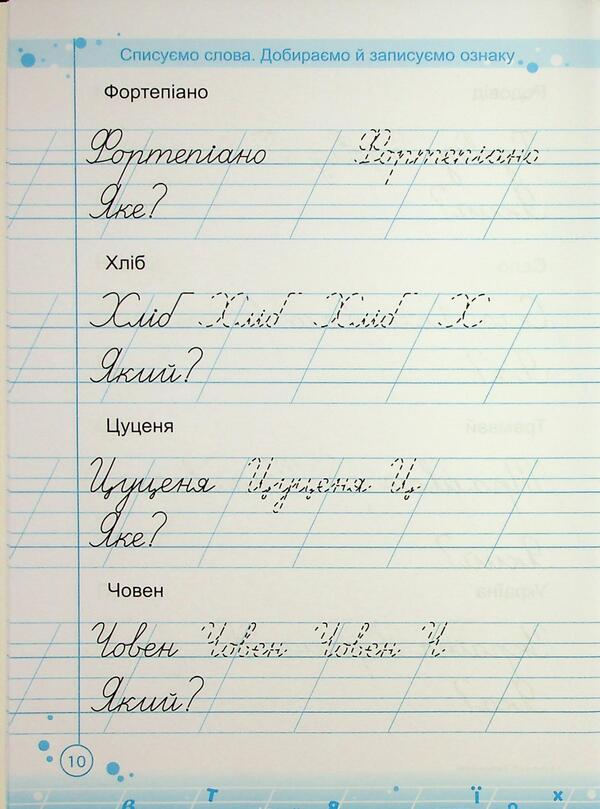 Списуємо слова. Добираємо й записуємо ознаку
Фортепіано
Фортепіано Фортепіано
Яке?
Хліб
Хліб Хліб Хліб Х
Який?
Цуценя
Цуценя Цуценя Ц
Яке?
Човен
Човен Човен Човен Ч
Який?
10
в т я ї о х